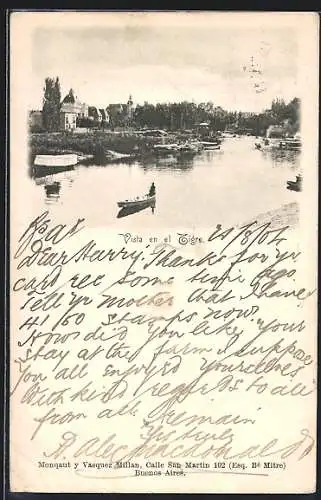 Vista en el Tigre.
21/8/04
Dear Harry. Thanks for yr
card rec some time ago
Tell yr mother that I have
41/60 stamps now
How did you like your
stay at the farm I suppose
you all enjoyed yourselves
With kind regards to all
from all. I remain
A.
Monqaut y Vasquez Millan, Calle San Martin 102 (Esq. Bé Mitre)
Buenos Aires.